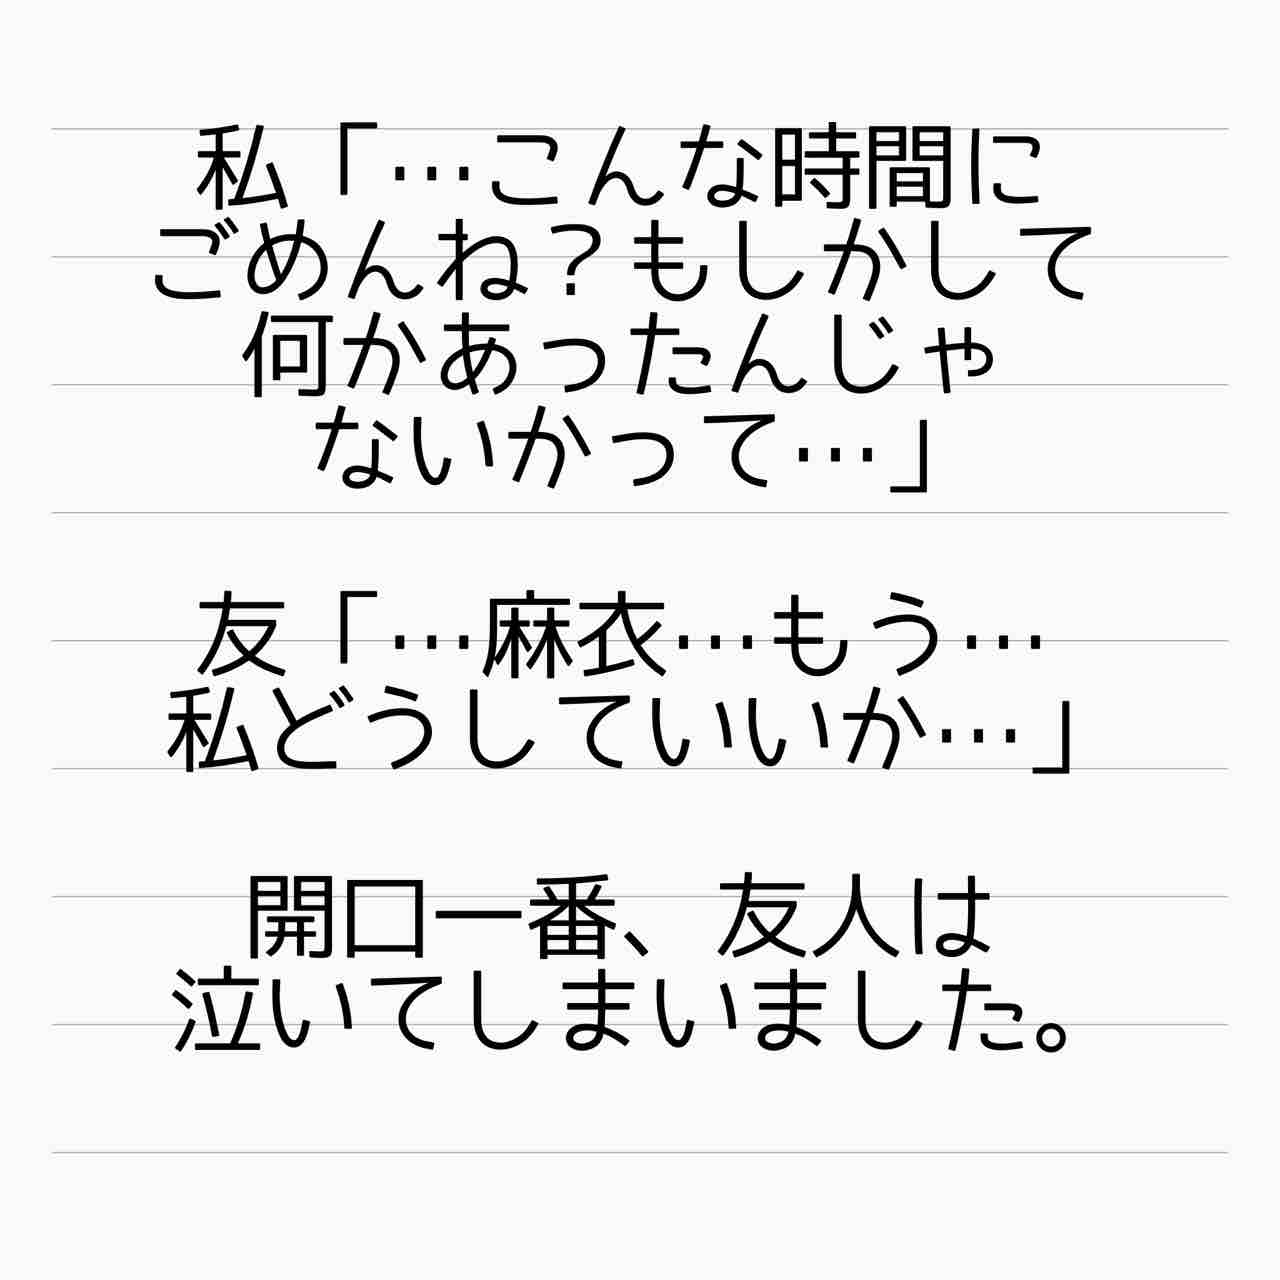 私「…こんな時間に
ごめんね？もしかして
何かあったんじゃ
ないかって…」
友「…麻衣…もう…
私どうしていいか…」
開口一番、友人は
泣いてしまいました。